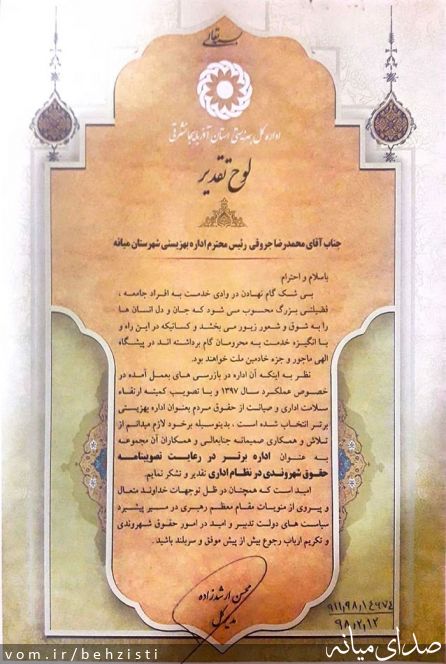 بسمه تعالی
اداره کل بهزیستی استان آذربایجانشرقی
لوح تقدیر
جناب آقای محمدرضا جروقی رئیس محترم اداره بهزیستی شهرستان میانه
باسلام و احترام
بی شک گام نهادن در وادی خدمت به افراد جامعه ،
فضیلتی بزرگ محسوب می شود که جان و دل انسان ها
را به شوق و شعور زیور می بخشد و کسانیکه در این راه و
با انگیزه خدمت به محرومان گام برداشته اند در پیشگاه
الهی ماجور و جزء خادمین ملت خواهند بود.
نظر به اینکه آن اداره در بازرسی های بعمل آمده در
خصوص عملکرد سال ۱۳۹۷ و با تصویب کمیته ارتقاء
سلامت اداری و صیانت از حقوق مردم بعنوان اداره بهزیستی
برتر انتخاب شده است ، بدینوسیله برخود لازم میدانم از
تلاش و همکاری صمیمانه جنابعالی و همکاران آن مجموعه
به عنوان اداره برتر در رعایت تصویبنامه
حقوق شهروندی در نظام اداری تقدیر و تشکر نمایم.
امید است که همچنان در ظل توجهات خداوند متعال
و پیروی از منویات مقام معظم رهبری در مسیر پیشبرد
سیاست های دولت تدبیر و امید در امور حقوق شهروندی
و تکریم ارباب رجوع بیش از پیش موفق و سربلند باشید.
محسن ارشدزاده
مدیرکل
۹۸,۲,۱۲
صدای میانه
vom.ir/behzisti